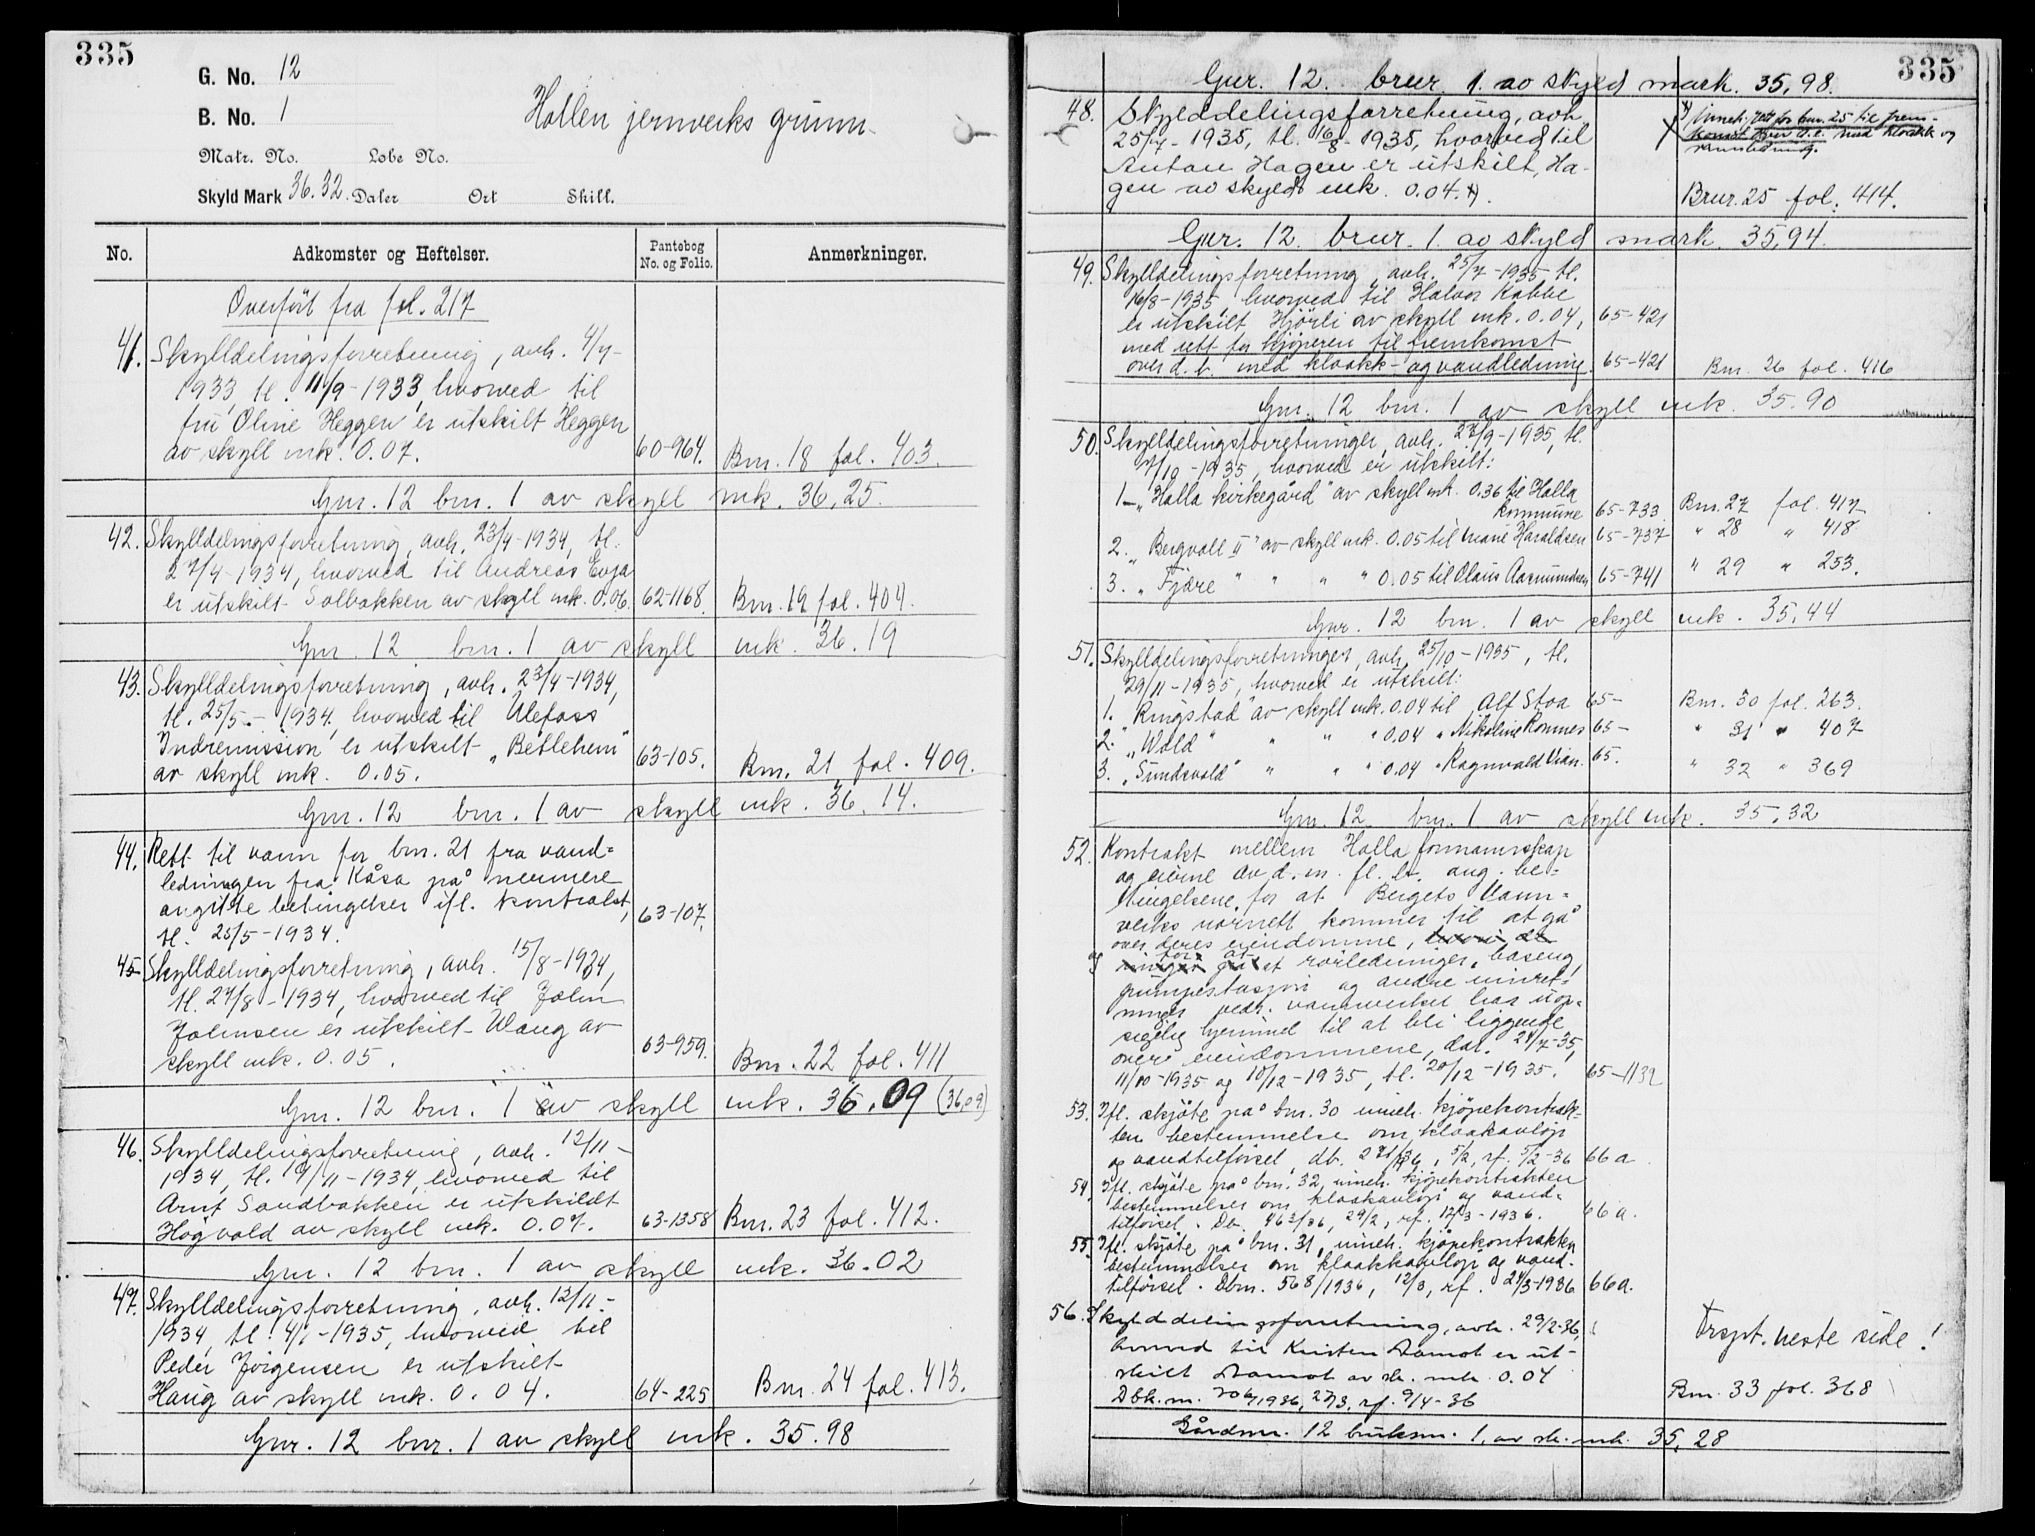 335
G. No. 12
B. No. 1
Hollen jernverks grunn
Matr. No. Løbe No.
Skyld Mark 36.32. Daler Ort Skill.
No. Adkomster og Heftelser. Pantebog No. og Folio. Anmerkninger.
Overfört fra fol. 217
41. Skylldelingsforretning, avh. 4/9-
1933, tl. 11/9-1933, hvorved til
fru Oline Heggen er utskilt Heggen
av skyll mk. 0.07. 60-964. Bnr. 18 fol. 403.
Gnr. 12 bnr. 1 av skyll mk. 36,25.
42. Skylldelingsforretning, avh. 23/4-1934, tl.
27/4-1934, hvorved til Andreas Evja
er utskilt Solbakken av skyll mk. 0.06. 62-1168. Bnr. 19 fol. 404.
Gnr. 12 bnr. 1 av skyll mk. 36.19
43. Skylldelingsforretning, avh. 23/4-1934,
tl. 25/5.- 1934. hvorved til Ulefoss
Indremission er utskilt „Betlehem"
av skyll mk. 0.05. 63-105. Bnr. 21 fol. 409.
Gnr. 12 bnr. 1 av skyll mk. 36.14.
44. Rett til vann for bnr. 21 fra vand=
ledningen fra Kåsa på nermere
angitte betingelser ifl. kontrakt,
tl. 25/5-1934. 63-107.
45 Skylldelingsforretning, avh. 15/8-1934,
tl. 27/8-1934, hvorved til John
Johnsen er utskilt Waug av
skyll mk. 0.05. 63-959. Bnr. 22 fol. 411
Gnr. 12 bnr. 1 av skyll mk. 36.09 (36,09)
46. Skylldelingsforretning, avh. 12/11-
1934, tl. 19/11-1934, hvorved til
Arnt Sandbakken er utskildt
Högvold av skyll mk. 0.07. 63-1358 Bnr. 23 fol. 412.
Gnr. 12 bnr. 1 av skyll mk. 36.02
47. Skylldelingsforretning, avh. 12/11-
1934, tl. 4/1-1935, hvorved til
Peder Jörgensen er utskilt
Haug av skyll mk. 0.04. 64-225 Bnr. 24 fol. 413.
Gnr. 12 bnr. 1 av skyll mk. 35.98
335
Gnr. 12. brnr. 1. av skyld mark. 35,98.
48. Skylddelingsforretning, avh.
25/7-1935, tl. 16/8-1935, hvorved til
Anton Hagen er utskilt, Ha-
gen av skyld mk. 0.04. x).
x) Inneh. rett for bnr. 25 til frem-
komst over d.b. med kloakk og
vannledning.
Brnr. 25 fol. 414.
Gnr. 12. brnr. 1. av skyld mark. 35,94.
49. Skylldelingsforretning, avh. 25/7-1935 tl.
16/8-1935, hvorved til Halvor Kabbe
er utskilt Hjörli av skyll mk. 0.04, 65-421
med rett for kjöperen til fremkomst
over d. b. med kloakk- og vandledning. 65-421 Bnr. 26 fol. 416
Gnr. 12 bnr. 1 av skyll mk. 35.90
50. Skylldelingsforretninger, avh. 27/9-1935, tl.
7/10-1935, hvorved er utskilt:
1 „Holla kirkegård" av skyll mk. 0.36 til Holla
kommune 65-733. Bnr. 27 fol. 417
2. „Bergvoll II" av skyll mk. 0.05 til Marie Haraldsen 65-737 " 28 " 418
3. „Fjære " " " " 0.05 til Olaus Aasmundsen 65-741 " 29 " 253.
Gnr. 12 bnr. 1 av skyll mk. 35,44
51. Skylldelingsforretninger, avh. 25/10-1935, tl.
29/11-1935, hvorved er utskilt:
1. „Ringstad" av skyll mk. 0.04 til Alf Stoa 65- Bnr. 30 fol. 263.
2. „Wold" " " " 0.04 " Nikoline Romnes 65- " 31 " 407
3. „Sundsvold" " " " 0.04 " Ragnvald Vian. 65. " 32 " 369
Gnr. 12 bnr. 1 av skyll mk. 35,32
52. Kontrakt mellem Holla formannskap
og eierne av d. m. fl. b. ang. be=
tingelsene for at Bergets Vann=
verks rörnett kommer til at gå
over deres eiendomme,
og for at rörledninger, baseng,
pumpestasjon og andre innret=
ninger vedr. vannverket har uop=
sigelig hjemmel til at bli liggende
over eiendommene, dat. 24/7-35,
11/10-1935 og 10/12-1935, tl. 20/12-1935. 65-1132
53. Ifl. skjöte på bnr. 30 inneh. kjöpekontrak-
ten bestemmelse om kloakavlöp
og vandtilförsel, db. 271/36, 5/2, rf. 5/2-36 66a
54. Ifl. skjöte på bnr. 32, inneh. kjöpekontrakten
bestemmelser om kloakavlöp og vand=
tilförsel. Db. 463/36, 29/2, rf. 12/3-1936. 66a.
55. Ifl. skjöte på bnr. 31, inneh. kjöpekontrakten
bestemmelser om kloakkavlöp og vand-
tilförsel. Dbnr. 568/1936, 12/3, rf. 24/3-1936 66a.
56. Skylddelingsforretning, avh. 29/2-36,
hvorved til Kristen Aamot er ut-
skilt Aamot av sk. mk. 0.04
Dbk. nr. 706/1936, 27/3, rf. 9/4-36
Frspt. neste side!
Bnr. 33 fol. 368
Gårdsnr. 12 bruksnr. 1, av sk. mk. 35,28